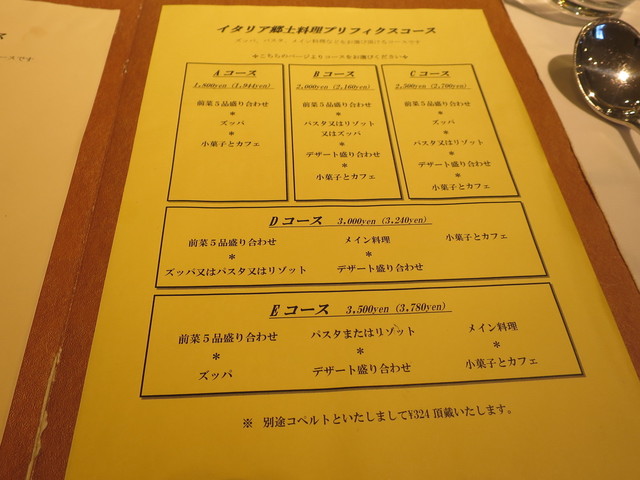 イタリア郷土料理プリフィクスコース
ズッパ、パスタ、メイン料理などをお選び頂けるコースです
※こちらのページよりコースをお選びください※
A コース
1,800yen (1,944yen)
前菜５品盛り合わせ
＊
ズッパ
＊
小菓子とカフェ
B コース
2,000yen (2,160yen)
前菜５品盛り合わせ
＊
パスタ又はリゾット
又はズッパ
＊
デザート盛り合わせ
＊
小菓子とカフェ
C コース
2,500yen (2,700yen)
前菜５品盛り合わせ
＊
ズッパ
＊
パスタ又はリゾット
＊
デザート盛り合わせ
＊
小菓子とカフェ
D コース 3,000yen (3,240yen)
前菜５品盛り合わせ
＊
ズッパ又はパスタ又はリゾット
メイン料理
＊
デザート盛り合わせ
小菓子とカフェ
E コース 3,500yen (3,780yen)
前菜５品盛り合わせ
＊
ズッパ
パスタまたはリゾット
＊
デザート盛り合わせ
メイン料理
＊
小菓子とカフェ
※ 別途コペルトといたしまして¥324 頂戴いたします。